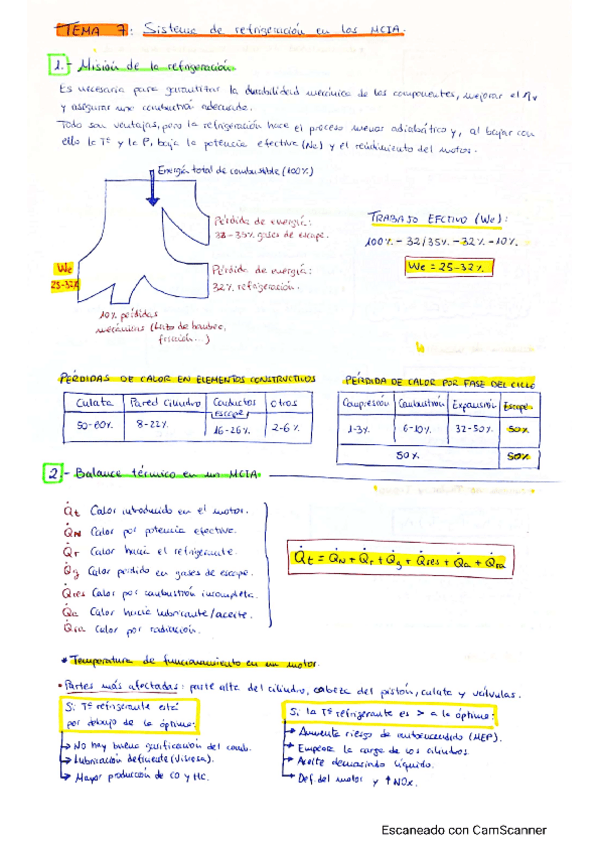 TEMA 7: Sistema de refrigeración en los MCIA.
1.- Misión de la refrigeración
Es necesaria para garantizar la durabilidad mecánica de los componentes, mejorar el ηv
y asegurar una combustión adecuada.
Todo son ventajas, pero la refrigeración hace el proceso menos adiabático y, al bajar con
ello la Tª y la P, baja la potencia efectiva (Ne) y el rendimiento del motor.
Energía total de combustible (100%)
Pérdida de energía:
32-35% gases de escape.
Pérdida de energía:
32% refrigeración.
We
25-32%
10% pérdidas
mecánicas
fricción...)
TRABAJO EFCTIVO (We):
100% - 32/35% - 32% - 10%
We = 25-32%
PÉRDIDAS DE CALOR EN ELEMENTOS CONSTRUCTIVOS
Culata Pared Cilindro Conductos escape Otros
50-60% 8-22% 16-26% 2-6%
PÉRDIDA DE CALOR POR FASE DEL CICLO
Compresión Combustión Expansión Escape
1-3% 6-10% 32-50% 50%
50% 50%
2.- Balance térmico en un MCIA
Q̇t Calor introducido en el motor.
Q̇N Calor por potencia efectiva.
Q̇r Calor hacia el refrigerante.
Q̇g Calor perdido en gases de escape.
Q̇res Calor por combustión incompleta.
Q̇a Calor hacia lubricante/aceite.
Q̇ra Calor por radiación.
Q̇t = Q̇N + Q̇r + Q̇g + Q̇res + Q̇a + Q̇ra
* Temperatura de funcionamiento en un motor.
• Partes más afectadas: parte alta del cilindro, cabeza del pistón, culata y válvulas.
Si Tª refrigerante está
por debajo de la óptima:
→ No hay buena gasificación del comb.
→ Lubricación deficiente (viscosa).
→ Mayor producción de CO y HC.
Si la Tª refrigerante es > a la óptima:
→ Aumenta riesgo de autoencendido (MEP).
→ Empeora la carga de los cilindros.
→ Aceite demasiado líquido.
→ Def del motor y ↑NOx.
Escaneado con CamScanner